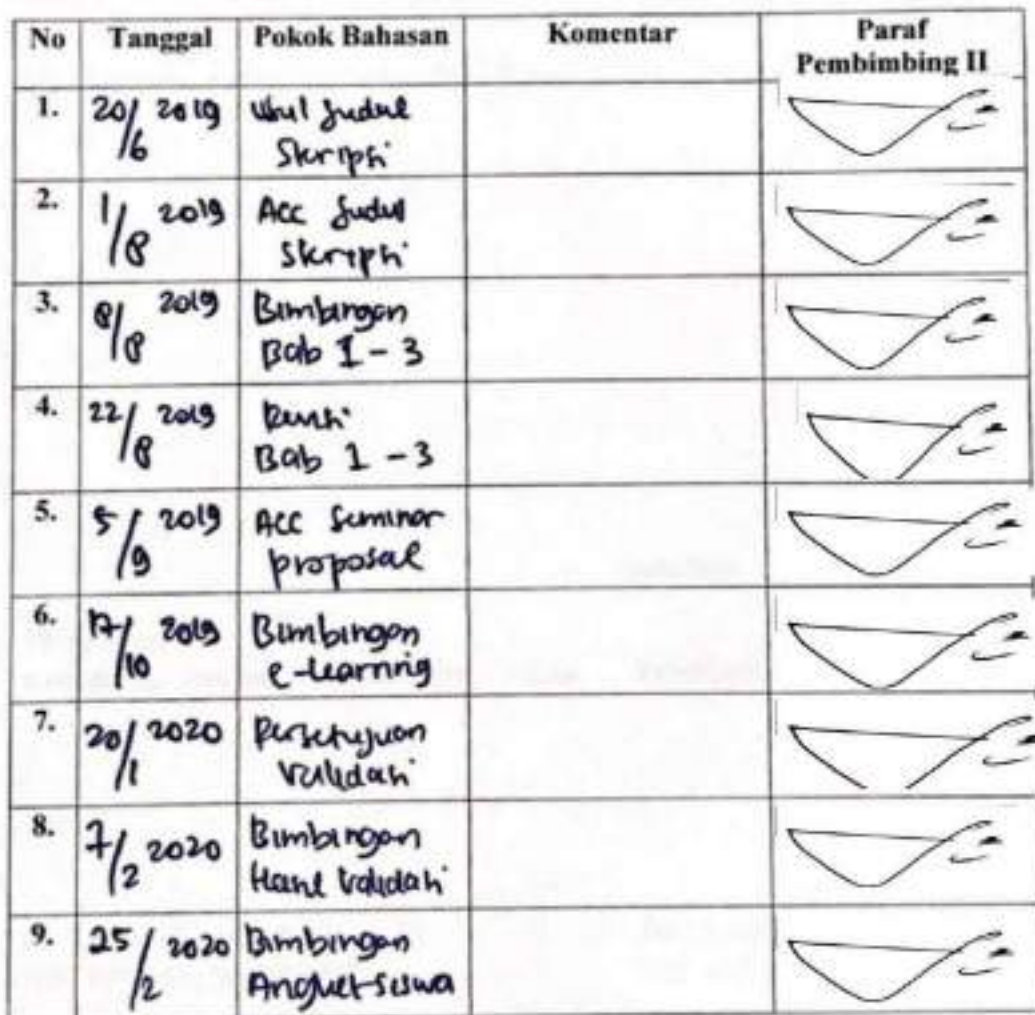 No Tanggal Pokok Bahasan Komentar Paraf
Pembimbing II
1. 20/6 2019 Usul Judul
Skripsi
2. 1/8 2019 Acc Judul
Skripsi
3. 8/8 2019 Bimbingan
Bab 1 - 3
4. 22/8 2019 Revisi
Bab 1 - 3
5. 5/9 2019 Acc Seminar
proposal
6. 17/10 2019 Bimbingan
e-learning
7. 20/1 2020 Persetujuan
Validasi
8. 7/2 2020 Bimbingan
Hasil Validasi
9. 25/2 2020 Bimbingan
Angket siswa